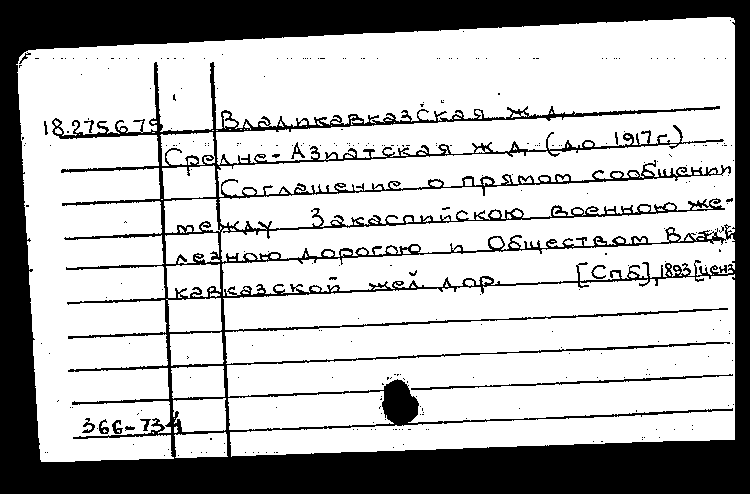 18.275.6.79 Владикавказская ж. д.
Средне-Азиатская ж. д. (до 1917 г.)
Соглашение о прямом сообщении
между Закаспийскою военною же-
лезною дорогою и Обществом Влади
кавказской жел. дор. [Спб], 1893 [ценз]
366-734